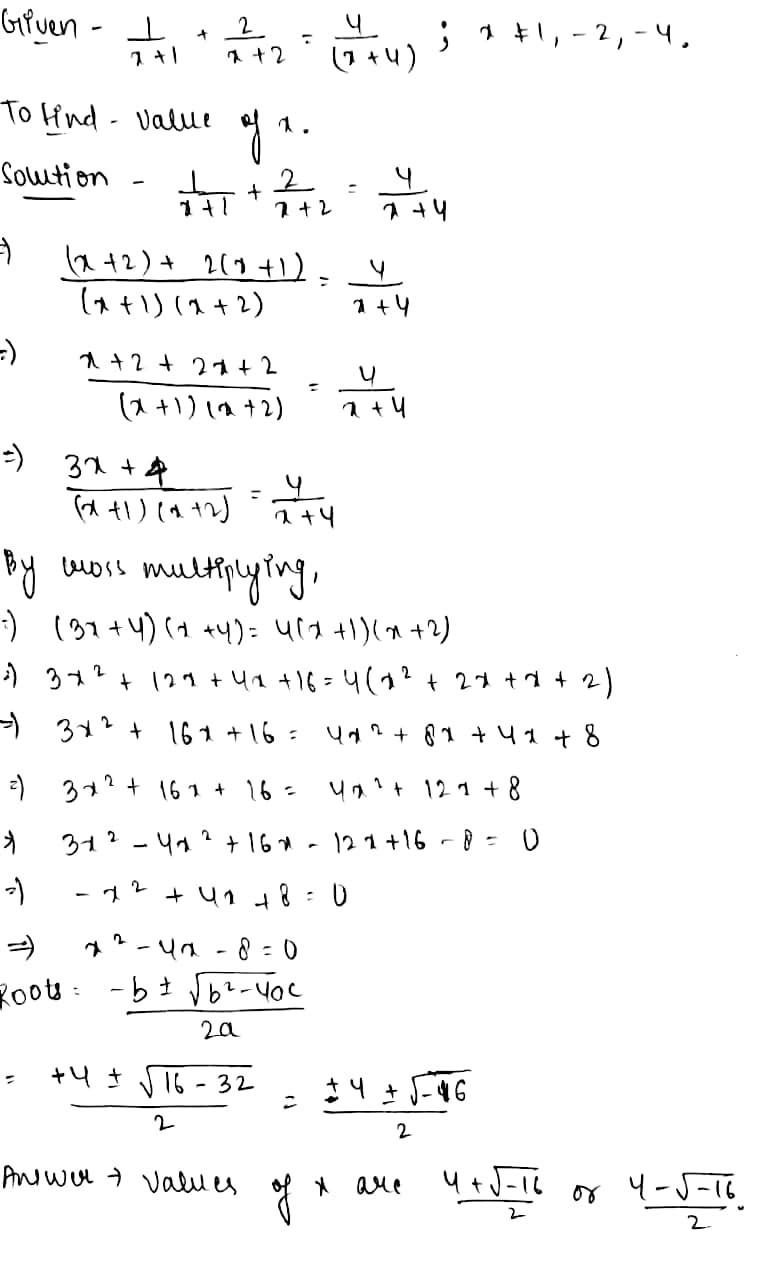 Given - 1/(x+1) + 2/(x+2) = 4/(x+4) ; x ≠ 1, -2, -4.
To find - Value of x.
Solution - 1/(x+1) + 2/(x+2) = 4/(x+4)
⇒ ((x+2) + 2(x+1))/((x+1)(x+2)) = 4/(x+4)
⇒ (x+2+2x+2)/((x+1)(x+2)) = 4/(x+4)
⇒ (3x+4)/((x+1)(x+2)) = 4/(x+4)
By cross multiplying,
⇒ (3x+4)(x+4) = 4(x+1)(x+2)
⇒ 3x² + 12x + 4x + 16 = 4(x² + 2x + x + 2)
⇒ 3x² + 16x + 16 = 4x² + 8x + 4x + 8
⇒ 3x² + 16x + 16 = 4x² + 12x + 8
⇒ 3x² - 4x² + 16x - 12x + 16 - 8 = 0
⇒ -x² + 4x + 8 = 0
⇒ x² - 4x - 8 = 0
Roots : (-b ± √(b²-4ac))/2a
= (+4 ± √(16-32))/2 = (±4 ± √-16)/2
Answer → Values of x are (4+√-16)/2 or (4-√-16)/2.